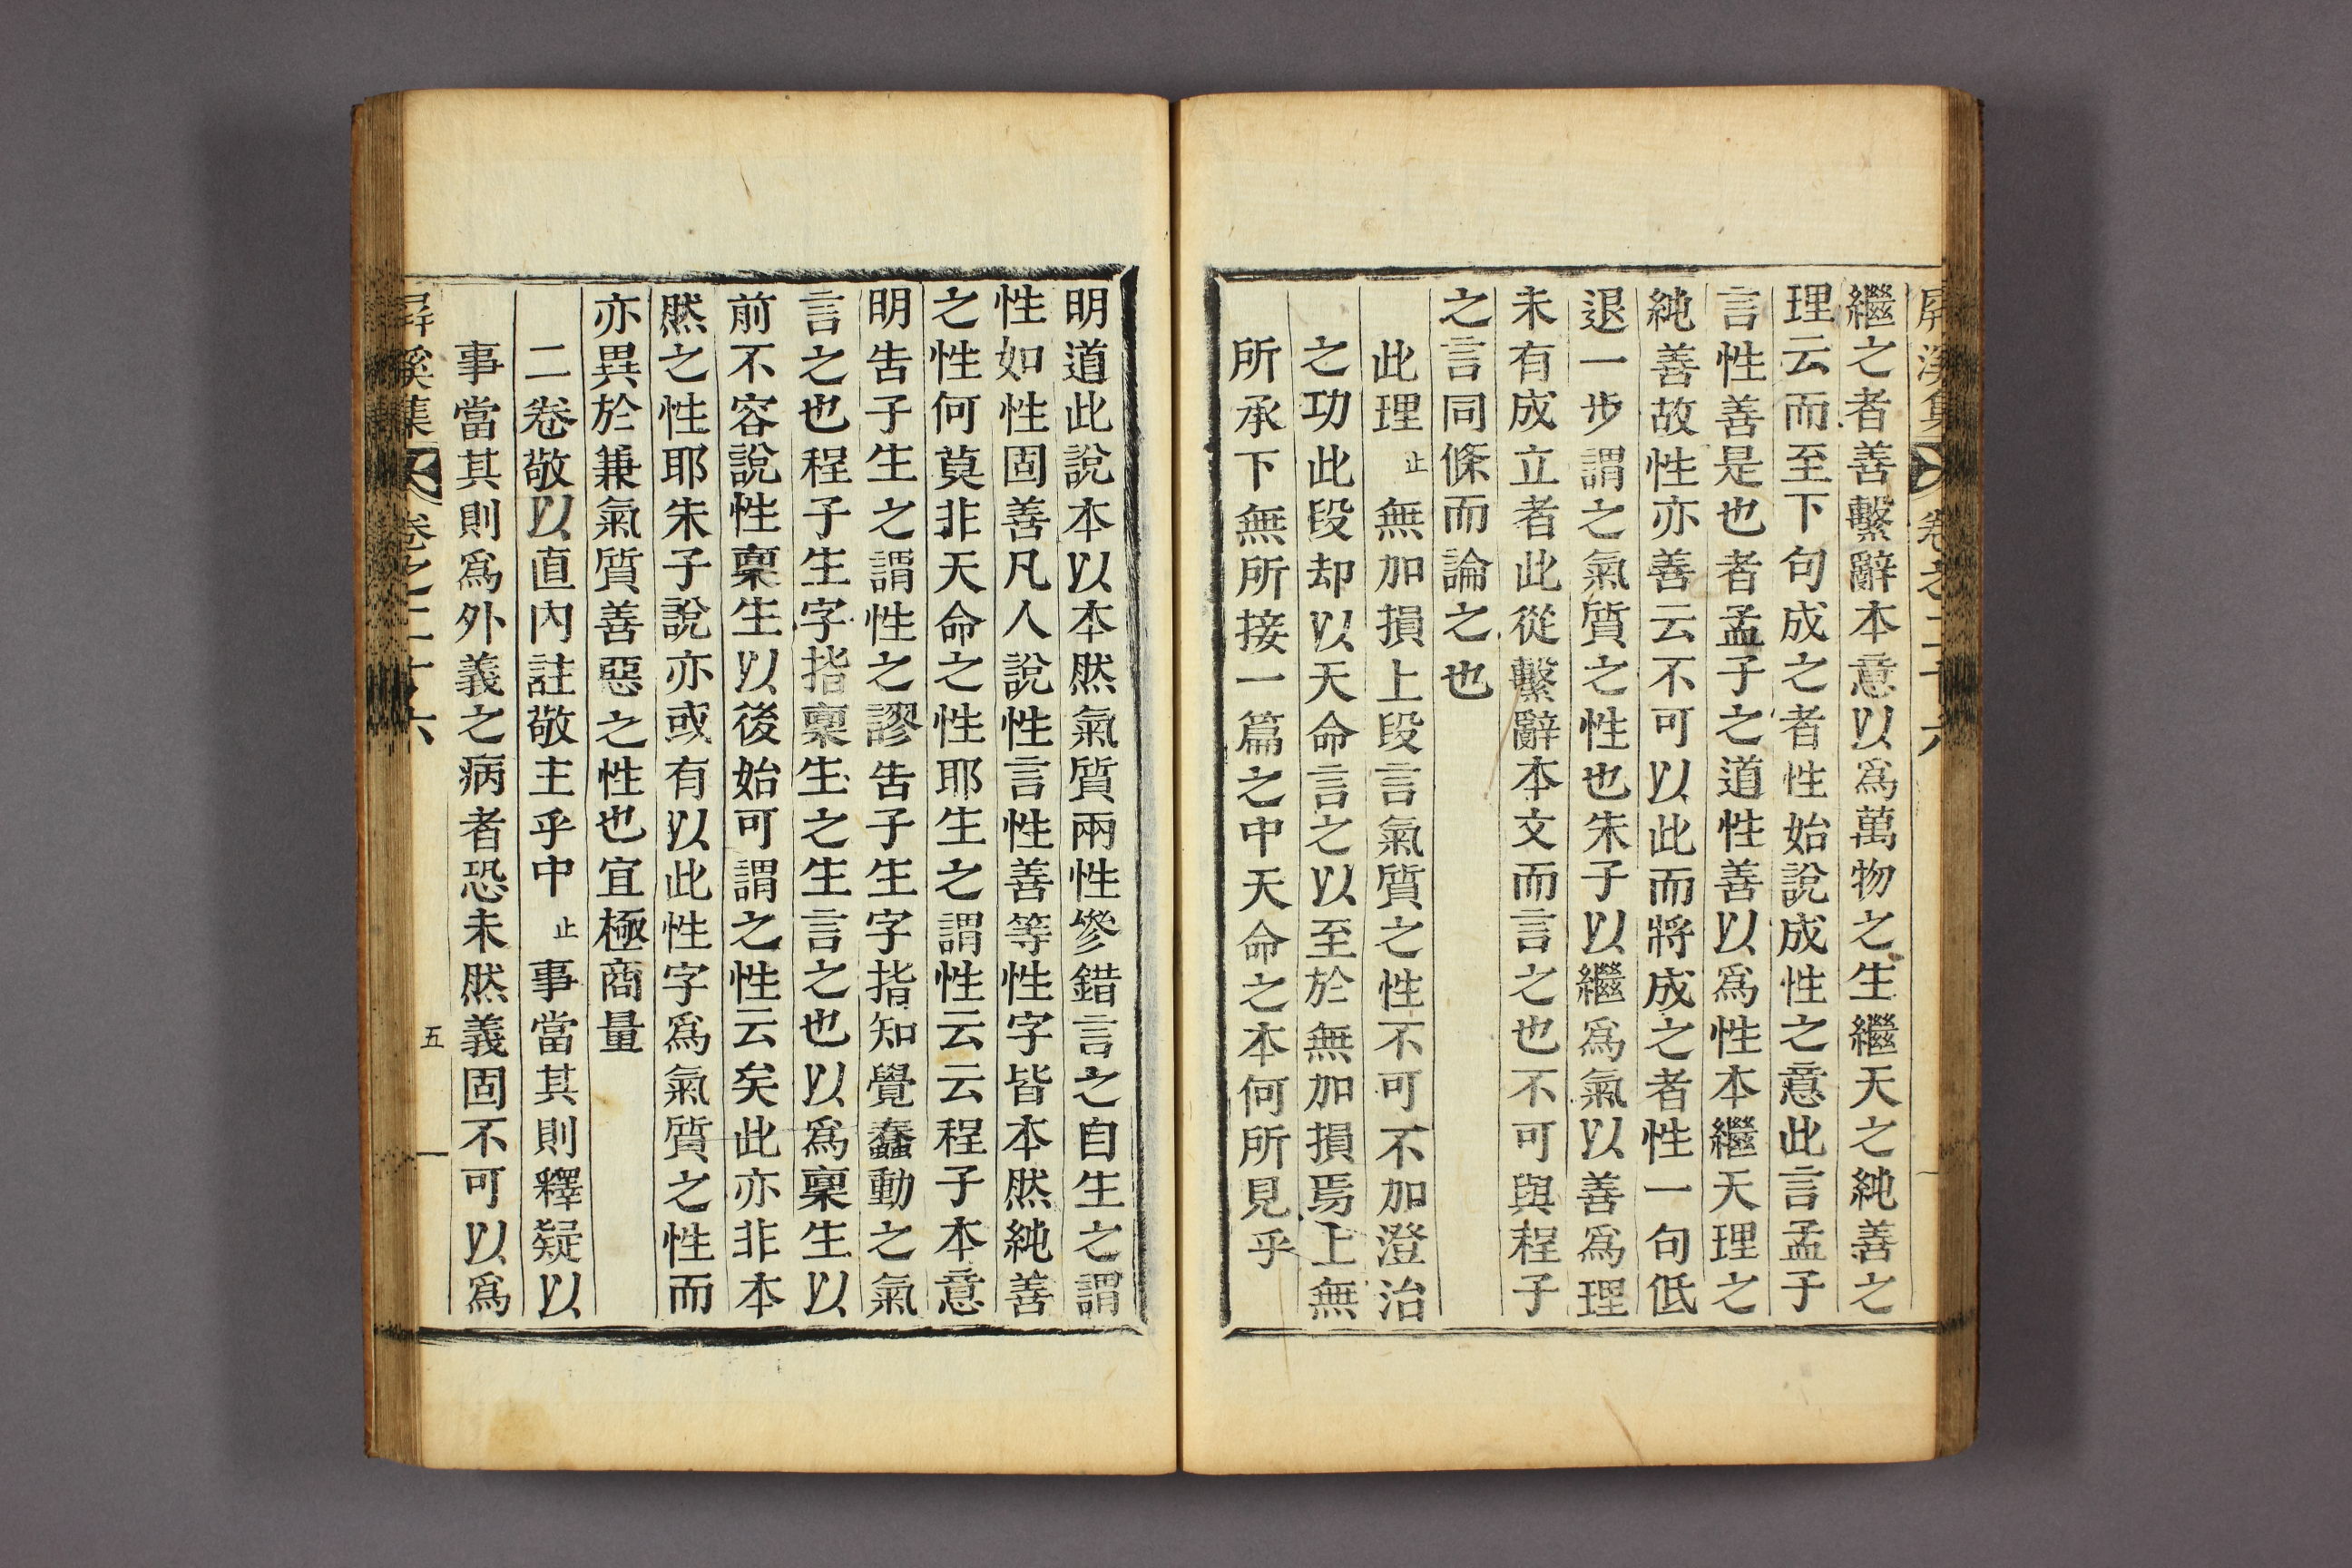 屛溪集 卷之二十六
繼之者善繫辭本意以爲萬物之生繼天之純善之
理云而至下句成之者性始說成性之意此言孟子
言性善是也者孟子之道性善以爲性本繼天理之
純善故性亦善云不可以此而將成之者性一句低
退一步謂之氣質之性也朱子以繼爲氣以善爲理
未有成立者此從繫辭本文而言之也不可與程子
之言同條而論之也
此理止無加損上段言氣質之性不可不加澄治
之功此段却以天命言之以至於無加損焉上無
所承下無所接一篇之中天命之本何所見乎
明道此說本以本然氣質兩性㕘錯言之自生之謂
性如性固善凡人說性言性善等性字皆本然純善
之性何莫非天命之性耶生之謂性云云程子本意
明告子生之謂性之謬告子生字指知覺蠢動之氣
言之也程子生字指稟生之生言之也以爲稟生以
前不容說性稟生以後始可謂之性云矣此亦非本
然之性耶朱子說亦或有以此性字爲氣質之性而
亦異於兼氣質善惡之性也宜極商量
二卷敬以直內註敬主乎中止事當其則釋疑以
事當其則爲外義之病者恐未然義固不可以爲
屛溪集 卷之二十六 五